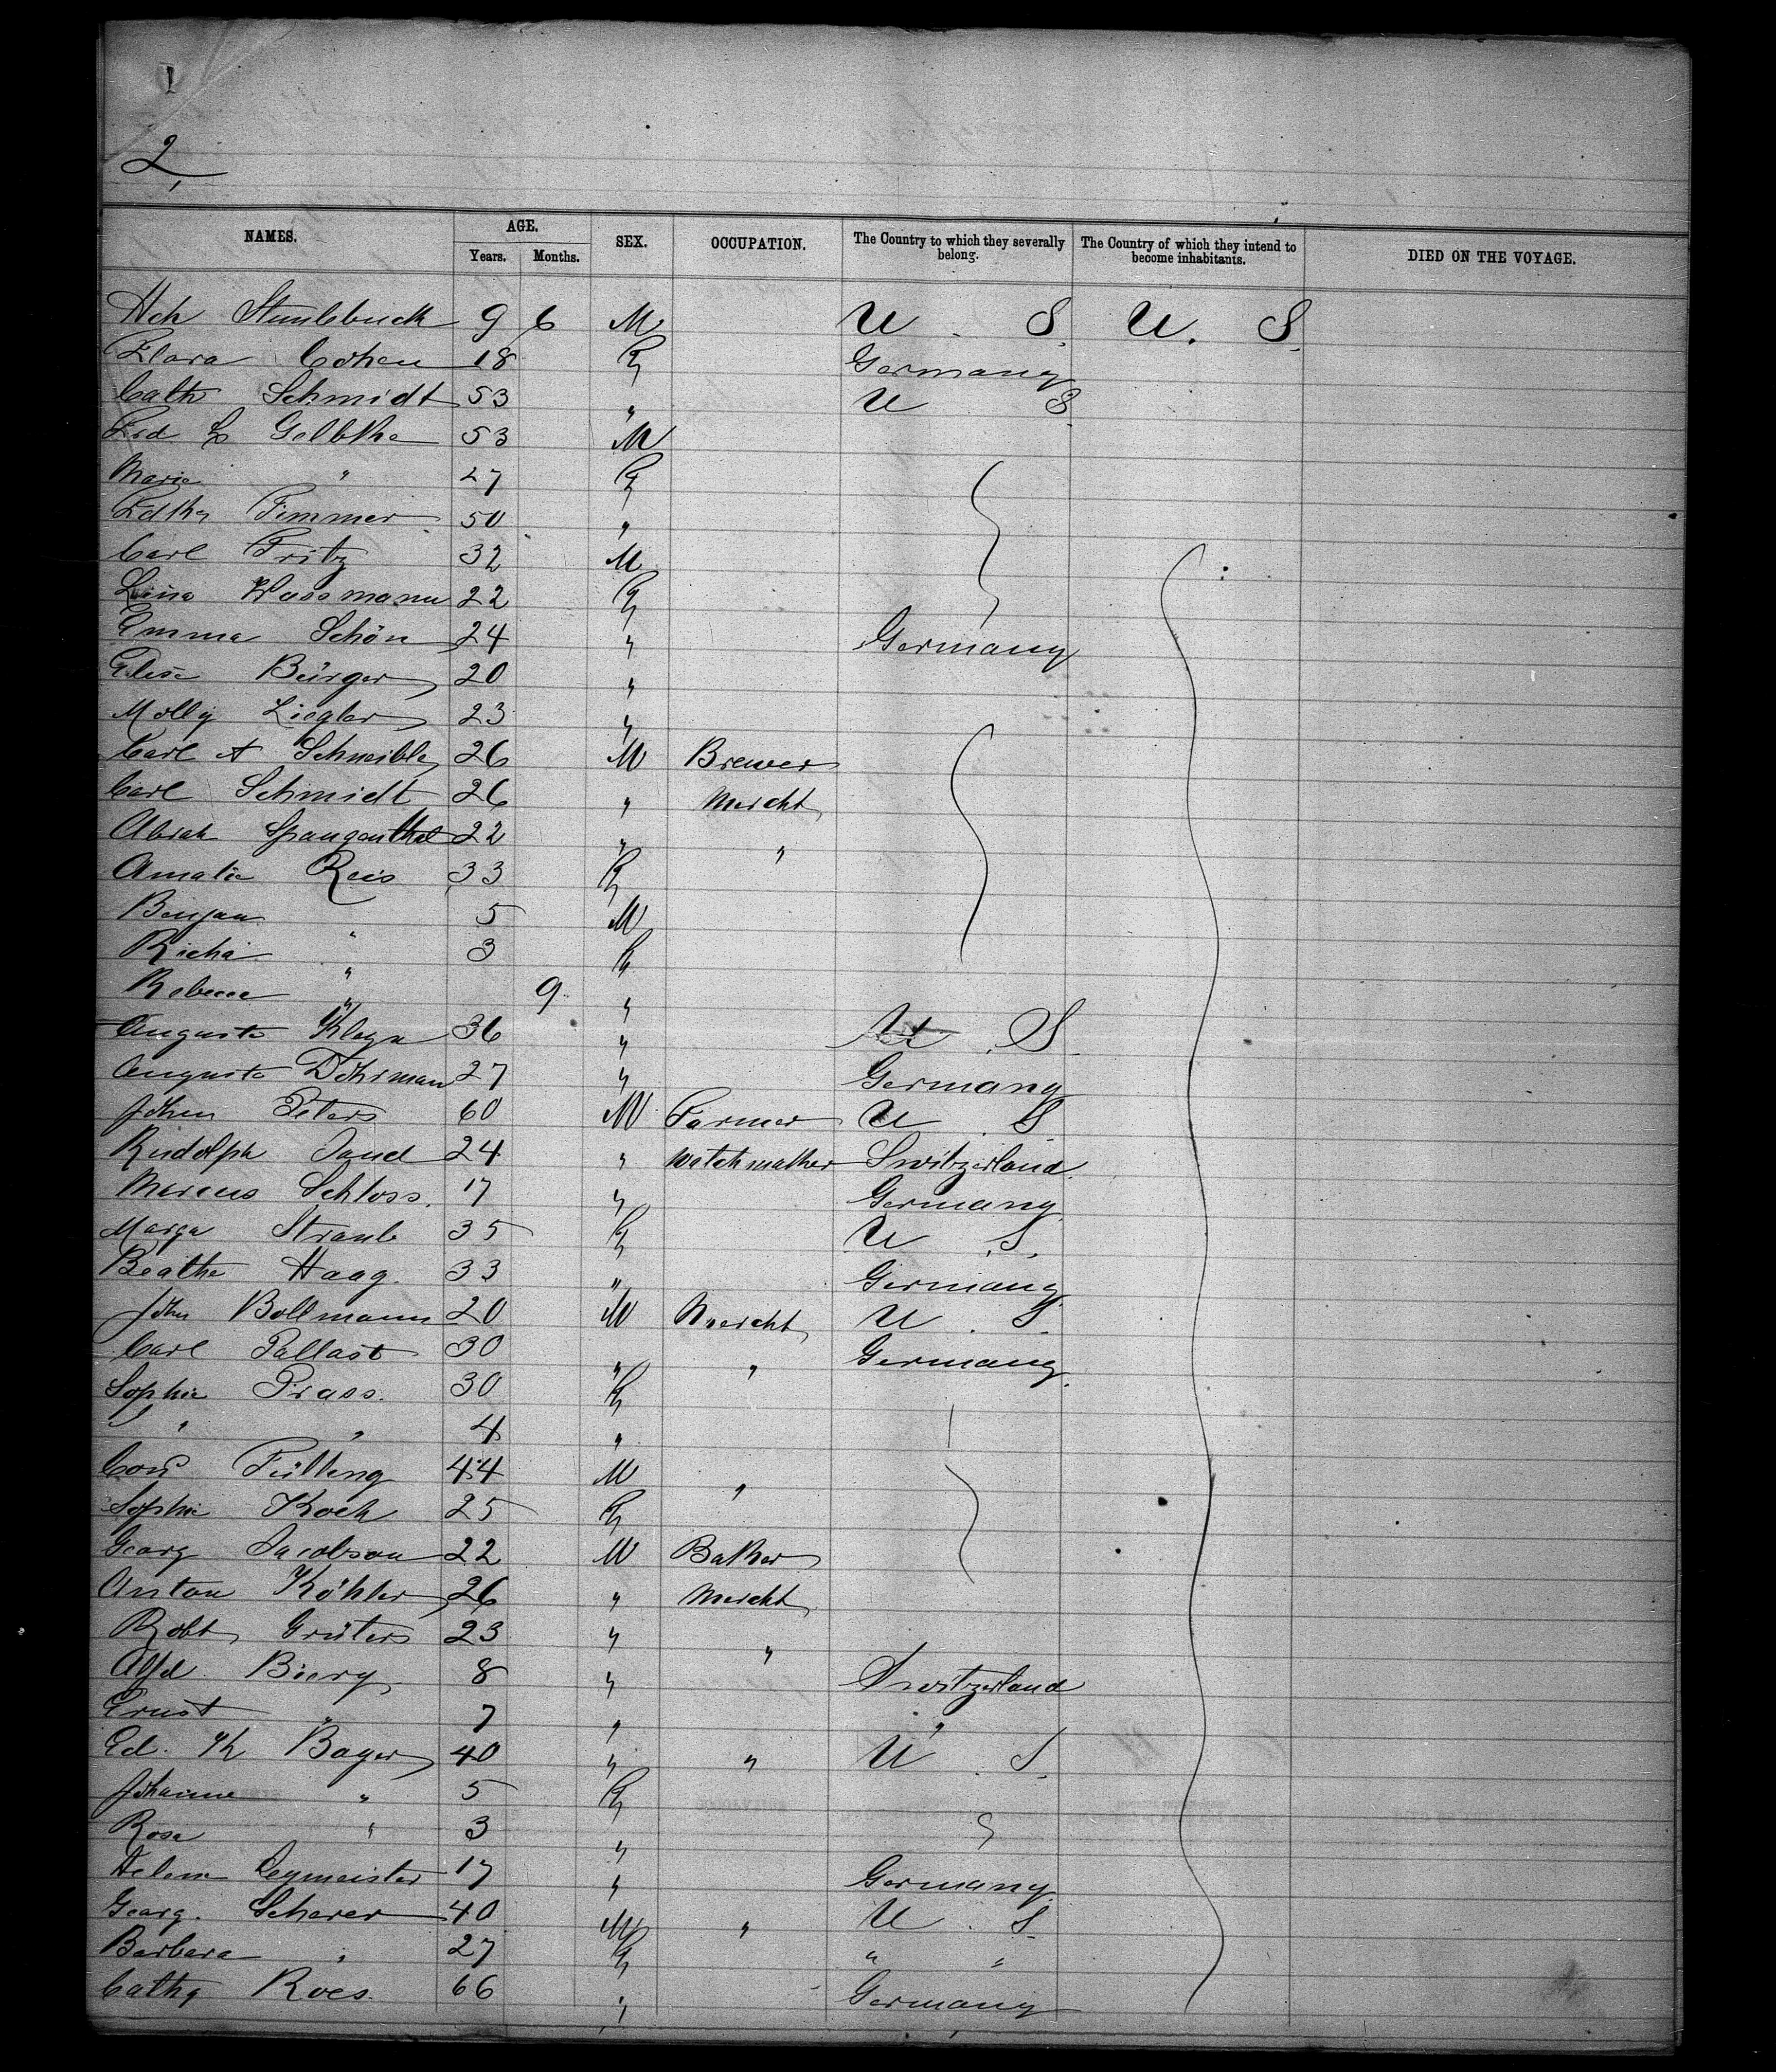 2,
NAMES. AGE. SEX. OCCUPATION. The Country to which they severally belong. The Country of which they intend to become inhabitants. DIED ON THE VOYAGE.
Years. Months.
Hch 9 6 M U. S. U. S.
Clara Cohen 18 F Germany
Cath Schmidt 53 " U S.
Frd L Gelbke 53 M
Marie " 27 F
Zimmer 50 "
Carl Fritz 32 M
Lina Wassmann 22 F
Emma Schön 24 " Germany
Elise Bürger 20 "
Molly Ziegler 23 "
Carl A 26 M Brewer
Carl Schmidt 26 " Mercht
Abrah Spangenthal 22 " "
Amalie Reis 33 F
Benjam " 5 M
Richa " 3 F
Rebecca " 9 "
Augusta 36 " U. S.
Augusta Döhrman 27 " Germany
Johen Peters 60 M Farmer U. S.
Rudolph 24 " Watchmaker Switzerland
Marcus Schloss. 17 " Germany
Marga Straub 35 F U. S.
Beathe Haag. 33 " Germany
John Bollmann 20 M Mercht U. S.
Carl Pallast 30 " " Germany
Sophie Prass. 30 F
" " 4 "
Fülling 44 M "
Sophie Koch 25 F
Georg Jacobson 22 M Baker
Anton Köhler 26 " Mercht
Robt Grüters 23 " "
Alfd. 8 " Switzerland
Ernst " 7 " "
Ed. K Bayer 40 " " U. S.
Johanne " 5 F
Rosa " 3 "
Helene 17 " Germany.
Georg. Scherer 40 M " U. S.
Barbara " 27 F " "
Cath Roes. 66 " Germany